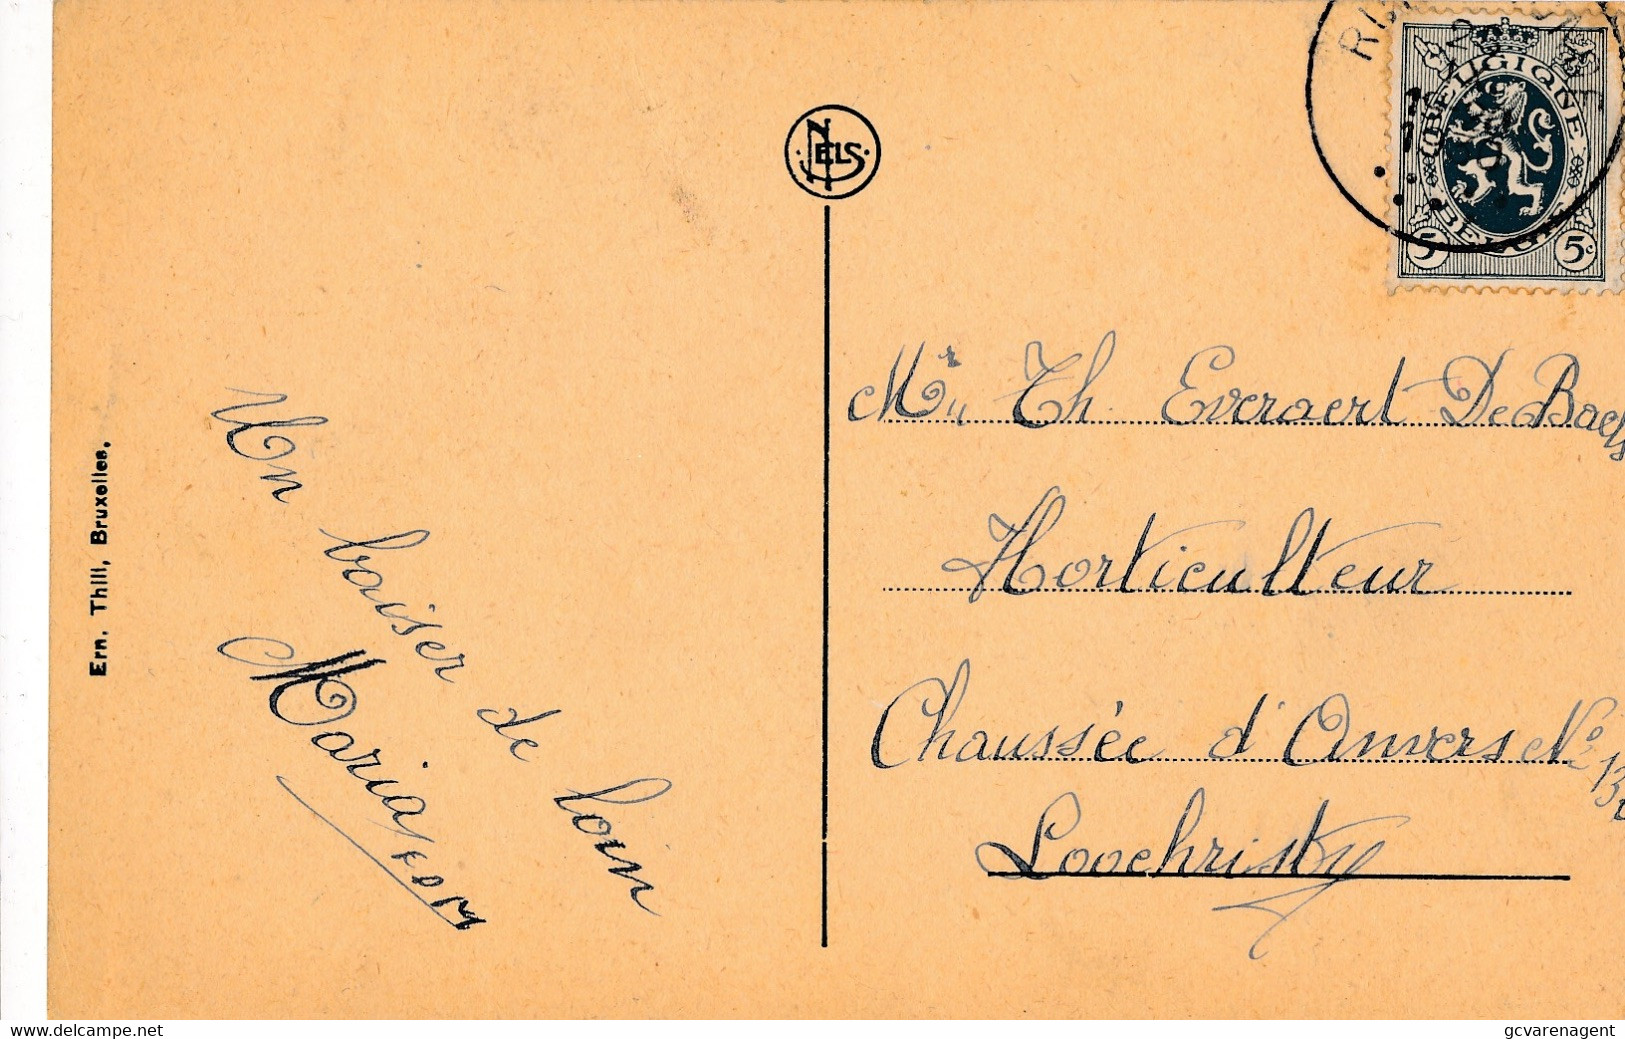 Ern. Thill, Bruxelles.
Un baiser de loin
Maria
NELS
BELGIQUE
BELGIË
5 5c
Mr Th Everaert De Baets
Horticulteur
Chaussée d'Anvers No
Loochristy
gcvarenagent
delcampe.net